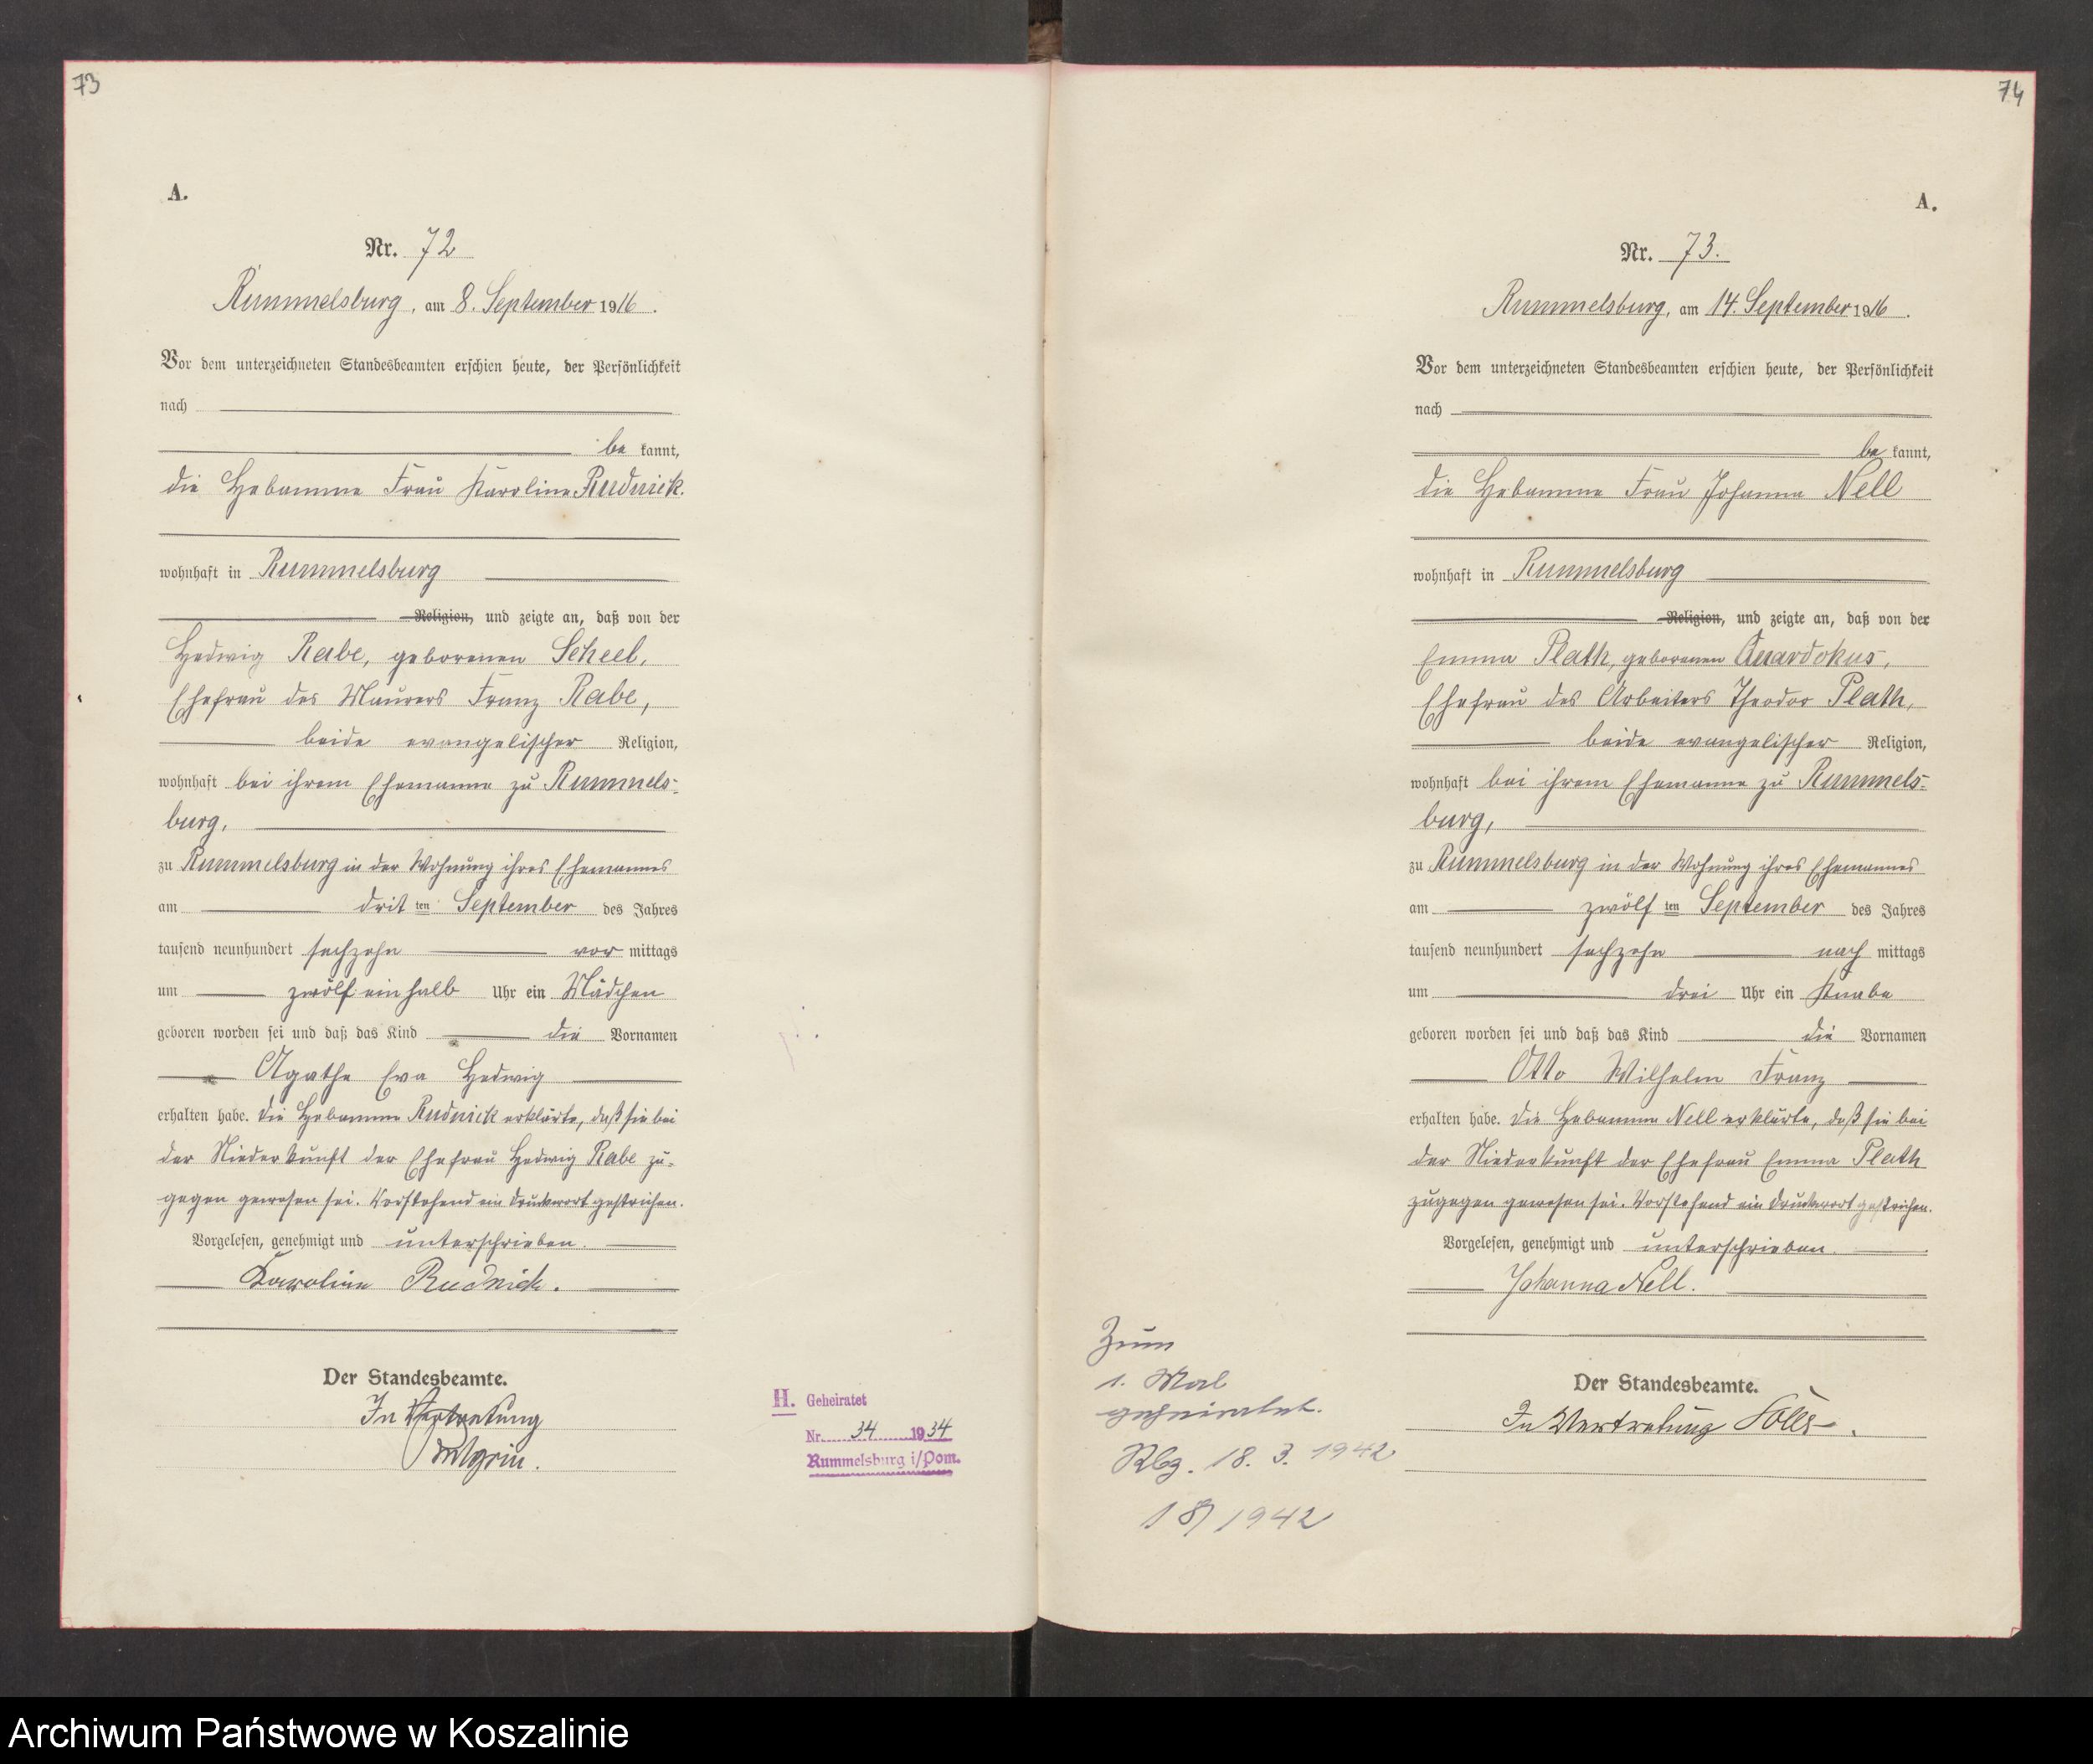 73
A.
Nr. 72
Rummelsburg, am 8. September 1916.
Vor dem unterzeichneten Standesbeamten erschien heute, der Persönlichkeit
nach
be kannt,
die Hebamme Frau Karoline Rudnick.
wohnhaft in Rummelsburg
Religion, und zeigte an, daß von der
Hedwig Rabe, geborenen Scheel,
Ehefrau des Maurers Franz Rabe,
beide evangelischer Religion,
wohnhaft bei ihrem Ehemanne zu Rummels-
burg,
zu Rummelsburg in der Wohnung ihres Ehemannes
am dritten September des Jahres
tausend neunhundert sechzehn vor mittags
um zwölf ein halb Uhr ein Mädchen
geboren worden sei und daß das Kind die Vornamen
Agathe Eva Hedwig
erhalten habe. Die Hebamme Rudnick erklärte, daß sie bei
der Niederkunft der Ehefrau Hedwig Rabe zu-
gegen gewesen sei. Vorstehend ein Druckwort gestrichen.
Vorgelesen, genehmigt und unterschrieben.
Karoline Rudnick.
Der Standesbeamte.
In Vertretung
H. Geheiratet
Nr. 34 1934
Rummelsburg i/Pom.
74
A.
Nr. 73.
Rummelsburg, am 14. September 1916.
Vor dem unterzeichneten Standesbeamten erschien heute, der Persönlichkeit
nach
be kannt,
die Hebamme Frau Johanna Nell
wohnhaft in Rummelsburg
Religion, und zeigte an, daß von der
Emma Plath, geborenen Quardokus,
Ehefrau des Arbeiters Theodor Plath,
beide evangelischer Religion,
wohnhaft bei ihrem Ehemanne zu Rummels-
burg,
zu Rummelsburg in der Wohnung ihres Ehemannes
am zwölften September des Jahres
tausend neunhundert sechzehn nach mittags
um drei Uhr ein Knabe
geboren worden sei und daß das Kind die Vornamen
Otto Wilhelm Franz
erhalten habe. Die Hebamme Nell erklärte, daß sie bei
der Niederkunft der Ehefrau Emma Plath
zugegen gewesen sei. Vorstehend ein Druckwort gestrichen.
Vorgelesen, genehmigt und unterschrieben.
Johanna Nell.
Der Standesbeamte.
In Vertretung
Zum
1. Mal
geheiratet.
Rbg. 18. 3. 1942
18/1942
Archiwum Państwowe w Koszalinie